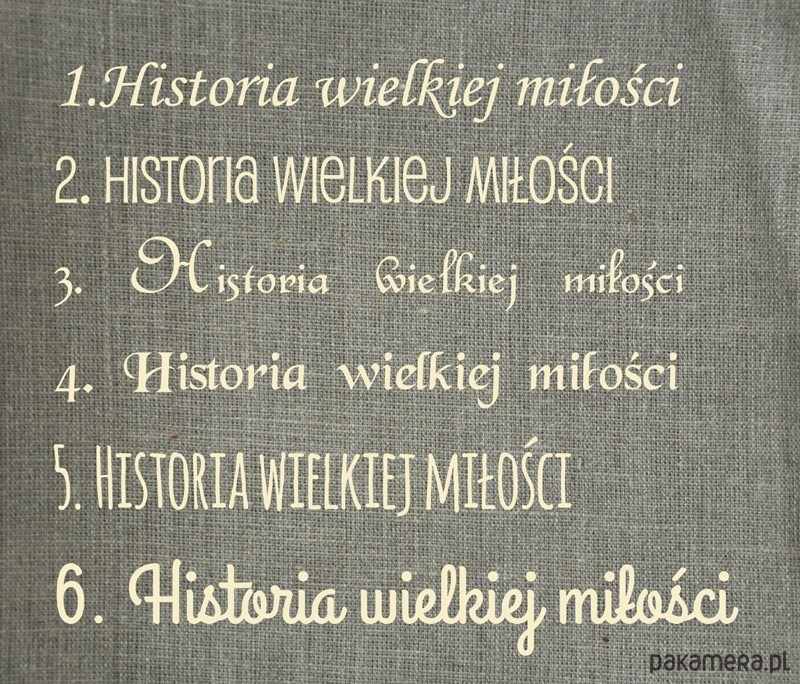 1.Historia wielkiej miłości
2. Historia wielkiej miłości
3. Historia wielkiej miłości
4. Historia wielkiej miłości
5. Historia wielkiej miłości
6. Historia wielkiej miłości
pakamera.pl